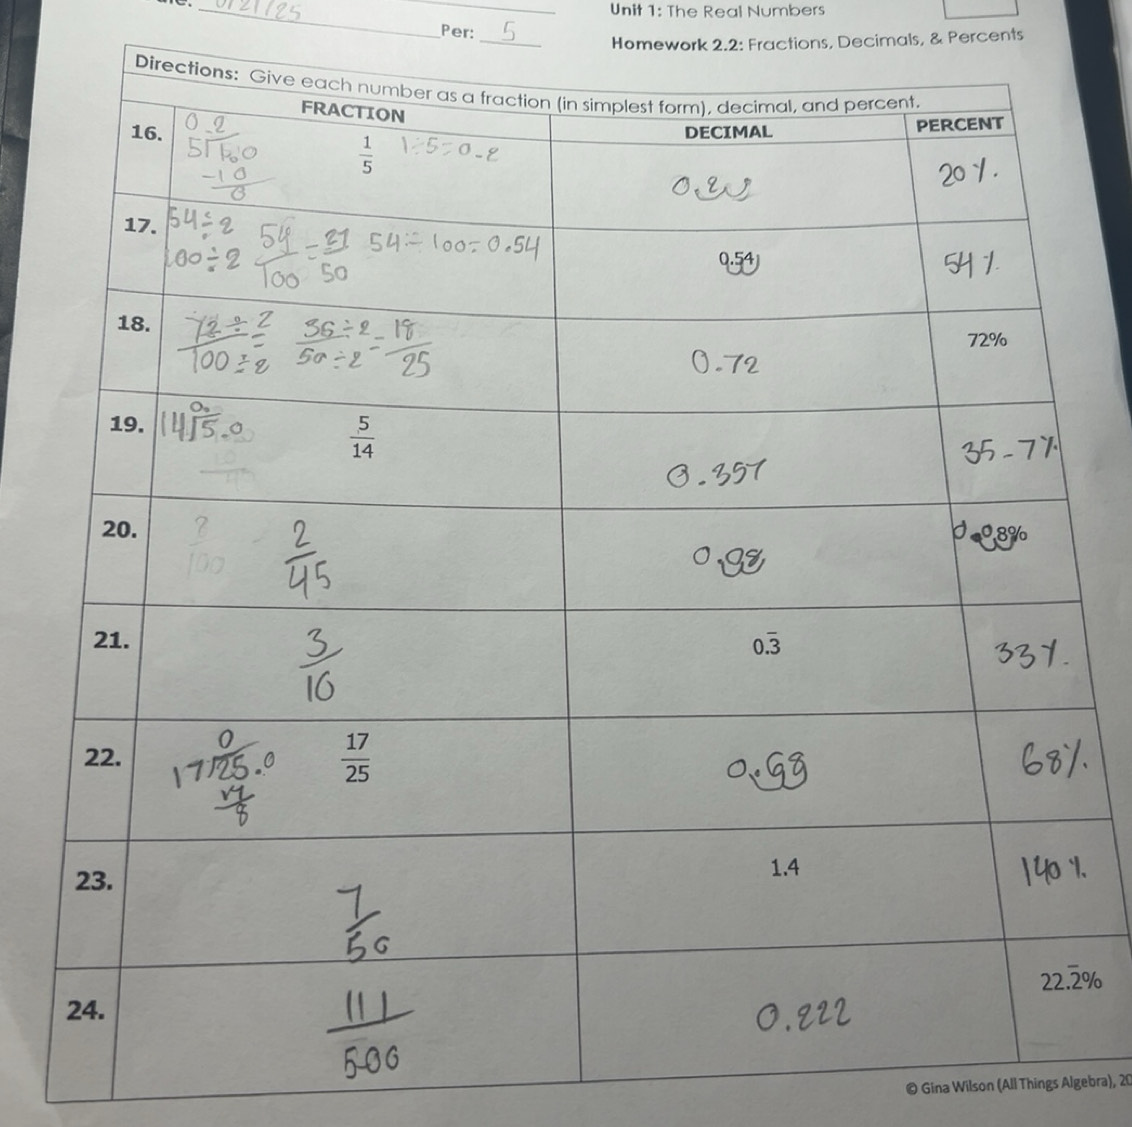 0/21/25
Unit 1: The Real Numbers
Per: 5
Homework 2.2: Fractions, Decimals, & Percents
Directions: Give each number as a fraction (in simplest form), decimal, and percent.
FRACTION DECIMAL PERCENT
16. 0.2
5√1.0
-10
0
1/5 1÷5=0.2 0.2 20%.
17. 54÷2
100÷2 54/100 = 27/50 54÷100=0.54 0.54 54%
18. 72÷2/100÷2 = 36÷2/50÷2 = 18/25 0.72 72%
19. 0.
14√5.0 5/14 0.357 35.7%
20. 8/100 2/45 0.08 0.08%
21. 3/10 0.3̅ 33%.
22. 0
17√25.0
17
8
17/25 0.68 68%.
23. 7/50 1.4 140%.
24. 111/500 0.222 22.2̅%
© Gina Wilson (All Things Algebra), 20